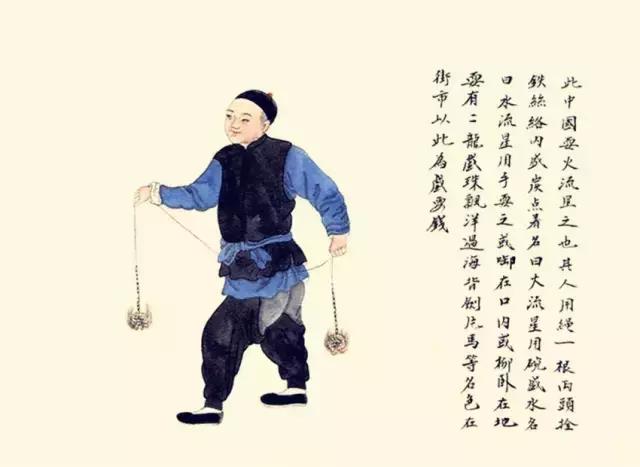 此中國耍火流星之也其人用繩一根両頭拴
鉄絲絡内或炭点着名曰大流星用碗盛水名
曰水流星用手耍之或啣在口内或柳臥在地
耍有二龍戲珠觀洋過海背劍片馬等名色在
街市以此為戲耍錢